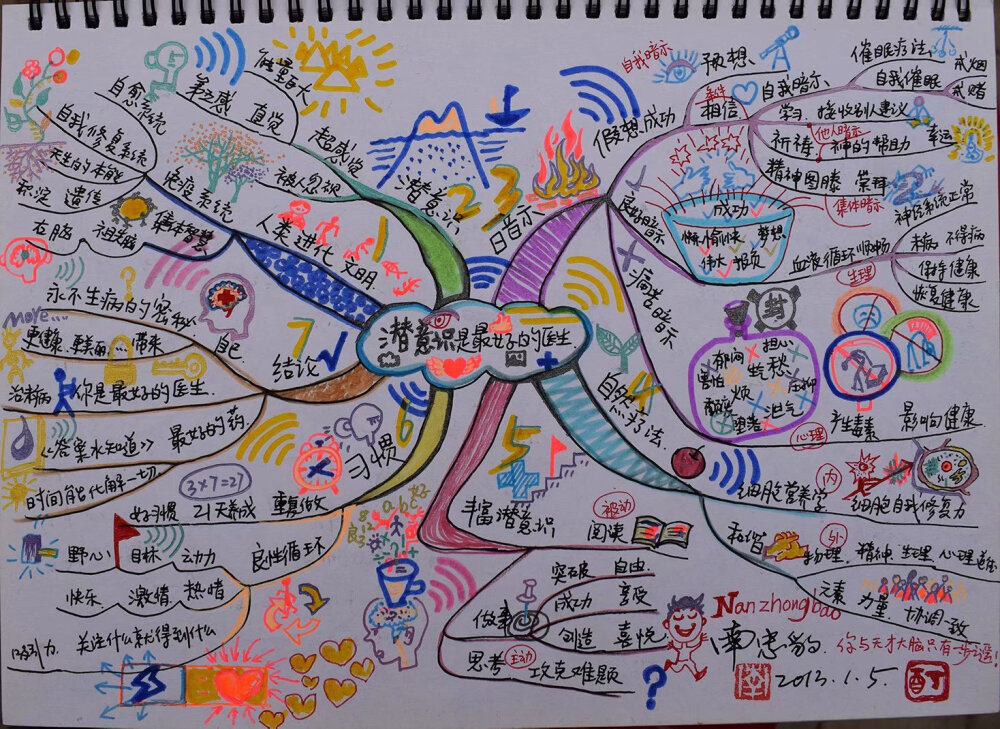 潜意识是最好的医生
1
人类进化 文明
集体智慧
祖先脑
右脑
免疫系统
自愈系统
自我修复系统
天生的本能
沉淀 遗传
2
潜意识
超感觉
第六感 直觉
能量大
被人忽视
3
暗示
假想成功
自我暗示
预想
相信
自我暗示
催眠疗法
自我催眠
戒烟
戒赌
学习 接收别人建议
他人暗示
祈祷 神的帮助
幸运
精神图腾 崇拜
集体暗示
成功
愉快 梦想
伟大 报负
神经系统正常
血液循环顺畅
生理
未病 不得病
保持健康
恢复健康
病者暗示
封
郁闷 担心
害怕 忧愁 压抑
烦
堕落 泄气
心理
产生毒素
影响健康
4
自然疗法
细胞营养学
内
细胞自我修复力
外
物理 精神 生理 心理
元素
力量 协调一致
5
丰富潜意识
被动
阅读
做事
突破 自由
成功 享受
创造 喜悦
思考
主动
攻克难题
?
6
习惯
重复做
3×7=21
21天养成
好习惯
良性循环
野心 目标 动力
快乐 激情 热情
吸引力 关注什么就得到什么
7
结论
永不生病的密秘
自己
more...
更健康 更美丽...带来
治未病 你是最好的医生
《答案水知道》 最好的药
时间能化解一切
Nanzhongbao
南忠豹
你与天才大脑只有一步之遥!
2013.1.5.